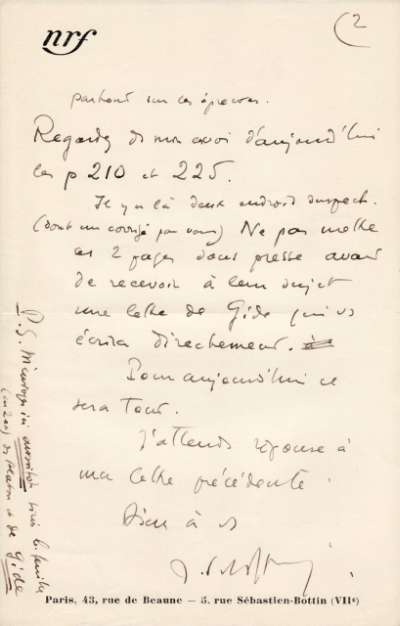 nrf
(2
partout sur les épreuves.
Regardez ds mon envoi d'aujourd'hui
les p 210 et 225.
Il y a là deux endroits suspects.
(dont un corrigé par vous) Ne pas mettre
ces 2 pages sous presse avant
de recevoir à leur sujet
une lettre de Gide qui vs
écrira directement.
Pour aujourd'hui ce
sera tout.
J'attends réponse à
ma lettre précédente.
Bien à vs
P.S. aussitôt
de Gide
Paris, 43, rue de Beaune — 5, rue Sébastien-Bottin (VIIᵉ)